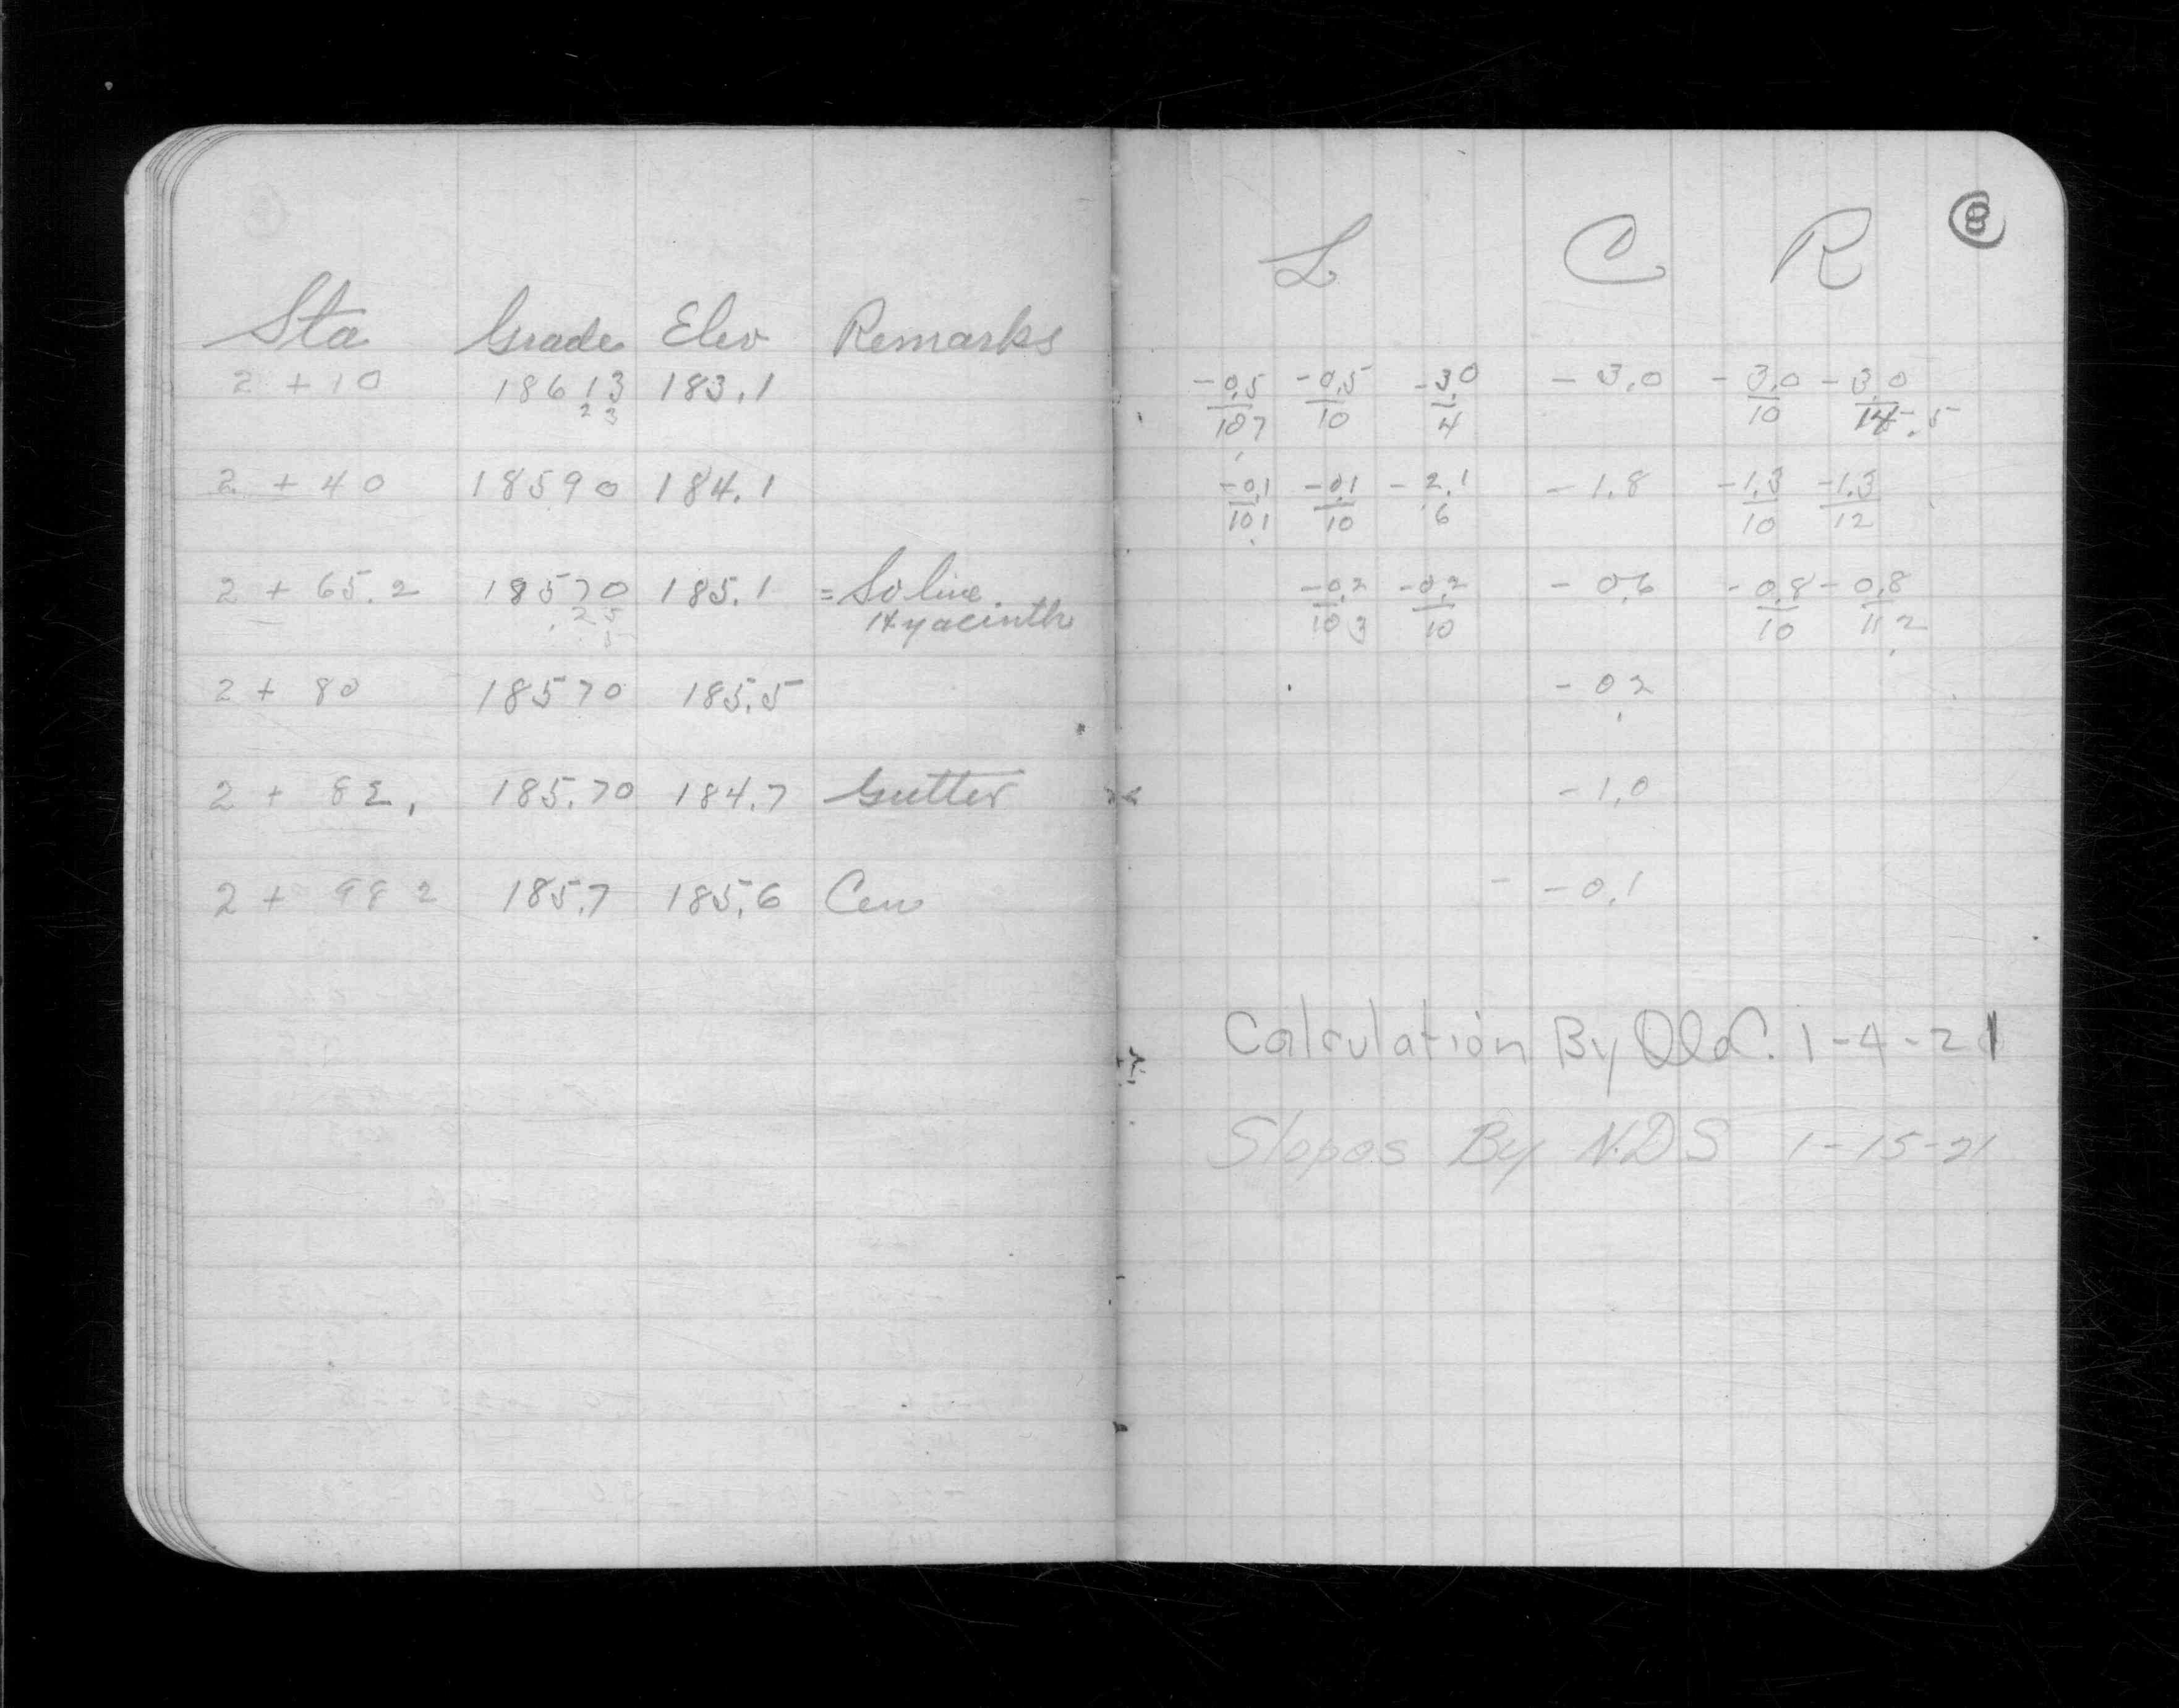 8
L C R
Sta Grade Elev Remarks
2 + 10 186 13 183.1 -0.5 -0.5 -3.0 - 3.0 - 3.0 - 3.0
23 107 10 4 10 14.5
2 + 40 185 90 184.1 -0.1 -0.1 - 2.1 - 1.8 -1.3 -1.3
10.1 10 6 10 12
2 + 65.2 185 70 185.1 = So line -0.2 -0.2 - 0.6 - 0.8 - 0.8
25 Hyacinth 10 3 10 10 11 2
5
2 + 80 185 70 185.5 - 0 2
2 + 82. 185.70 184.7 Gutter - 1.0
2 + 98 2 185.7 185.6 Cen - 0.1
Calculation By 1-4-21
Slopes By N.D.S 1-15-21